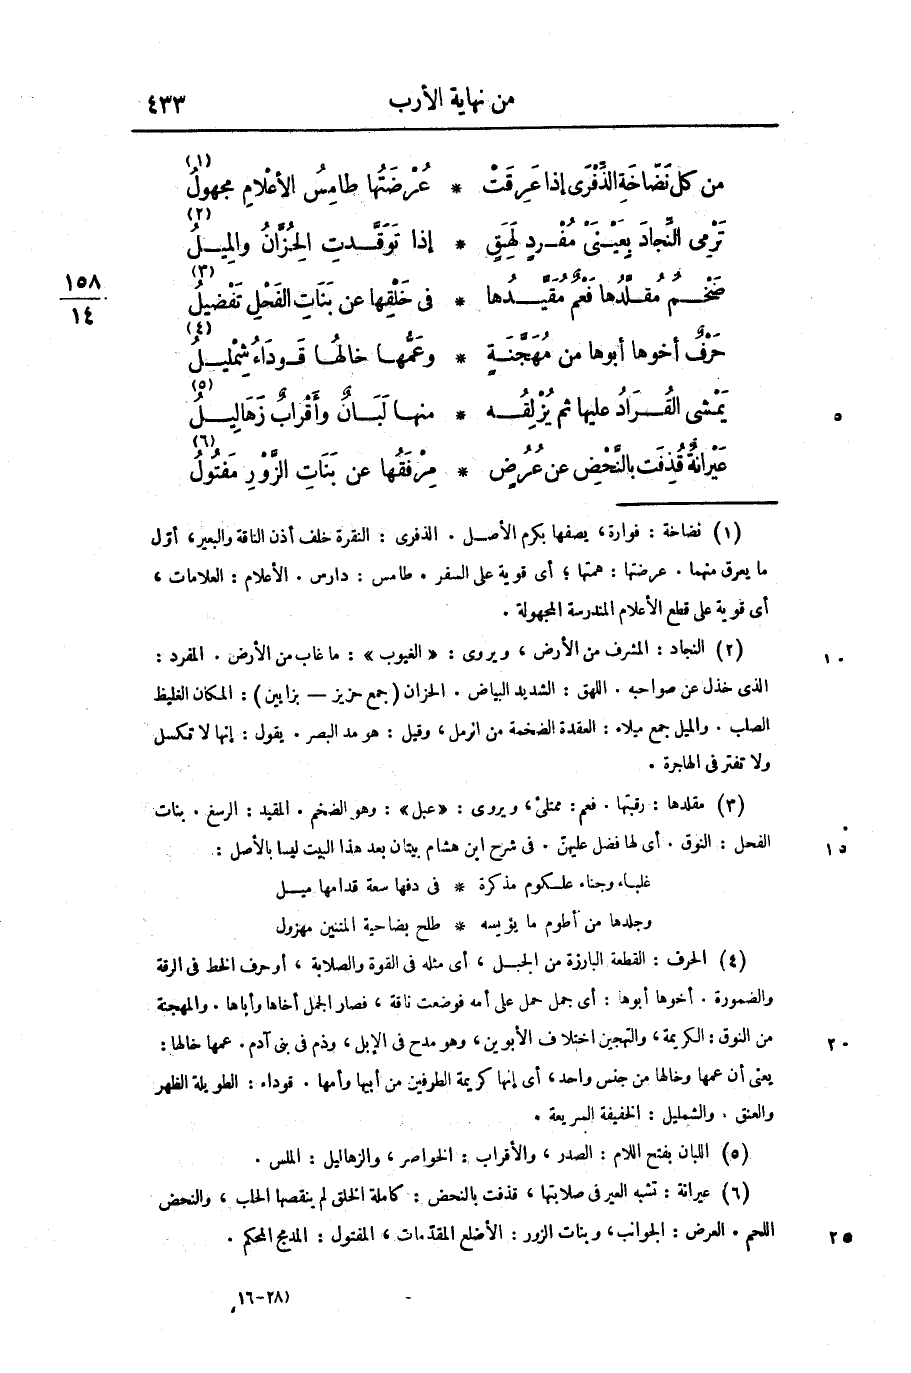 من نهاية الأرب ٤٣٣
من كل نَضّاخَةِ الذِّفْرَى إذا عَرِقَتْ * عُرْضَتُها طامِسُ الأعْلامِ مجهولُ (١)
تَرْمِى النِّجادَ بِعَيْنَىْ مُفْرِدٍ لَهِقٍ * إذا تَوَقَّدتِ الحُزّانُ والمِيلُ (٢)
ضَخْمٌ مُقَلَّدُها فَعْمٌ مُقَيَّدُها * فى خَلْقِها عن بَنَاتِ الفَحْلِ تَفْضِيلُ (٣)
١٥٨
١٤
حَرْفٌ أخوها أبوها من مُهَجَّنَةٍ * وعَمُّها خالُها قَوداءُ شِمْلِيلُ (٤)
يَمْشى القُرَادُ عليها ثم يُزْلِقُه * منها لَبَانٌ وأَقْرابٌ زَهَالِيلُ (٥)
٥
عَيْرانةٌ قُذِفَت بالنَّحْضِ عن عُرُضٍ * مِرْفَقُها عن بَنَاتِ الزَّوْرِ مَفْتُولُ (٦)
(١) نضاخة : فوارة، يصفها بكرم الأصل . الذفرى : النقرة خلف أذن الناقة والبعير، أوّل
ما يعرق منهما . عرضتها : همتها ؛ أى قوية على السفر . طامس : دارس . الأعلام : العلامات ،
أى قوية على قطع الأعلام المندرسة المجهولة .
(٢) النجاد : المشرف من الأرض ، ويروى : « الغيوب » : ما غاب من الأرض . المفرد :
١٠
الذى خذل عن صواحبه . اللهق : الشديد البياض . الحزان (جمع حزيز — بزايين) : المكان الغليظ
الصلب . والميل جمع ميلاء : العقدة الضخمة من الرمل ، وقيل : هو مد البصر . يقول : إنها لا تكسل
ولا تفتر فى الهاجرة .
(٣) مقلدها : رقبتها . فعم : ممتلئ، ويروى : «عبل» : وهو الضخم . المقيد : الرسغ . بنات
الفحل : النوق . أى لها فضل عليهنّ . فى شرح ابن هشام بيتان بعد هذا البيت ليسا بالأصل :
١٥
غلباء وجناء علكوم مذكرة * فى دفها سعة قدامها ميل
وجلدها من أطوم ما يؤيسه * طلح بضاحية المتنين مهزول
(٤) الحرف : القطعة البارزة من الجبل ، أى مثله فى القوة والصلابة ، أو حرف الخط فى الرقة
والضمورة . أخوها أبوها : أى جمل حمل على أمه فوضعت ناقة ، فصار الجمل أخاها وأباها . والمهجنة
من النوق : الكريمة ، والتهجين اختلاف الأبوين ، وهو مدح فى الإبل ، وذم فى بنى آدم . عمها خالها :
٢٠
يعنى أن عمها وخالها من جنس واحد، أى إنها كريمة الطرفين من أبيها وأمها . قوداء : الطويلة الظهر
والعنق . والشمليل : الخفيفة السريعة .
(٥) اللبان بفتح اللام : الصدر ، والأقراب : الخواصر ، والزهاليل : الملس .
(٦) عيرانة : تشبه العير فى صلابتها ، قذفت بالنحض : كاملة الخلق لم ينقصها الحلب ، والنحض
اللحم . العرض : الجوانب، وبنات الزور : الأضلع المقدّمات ، المفتول : المدمج المحكم .
٢٥
(٢٨-١٦)